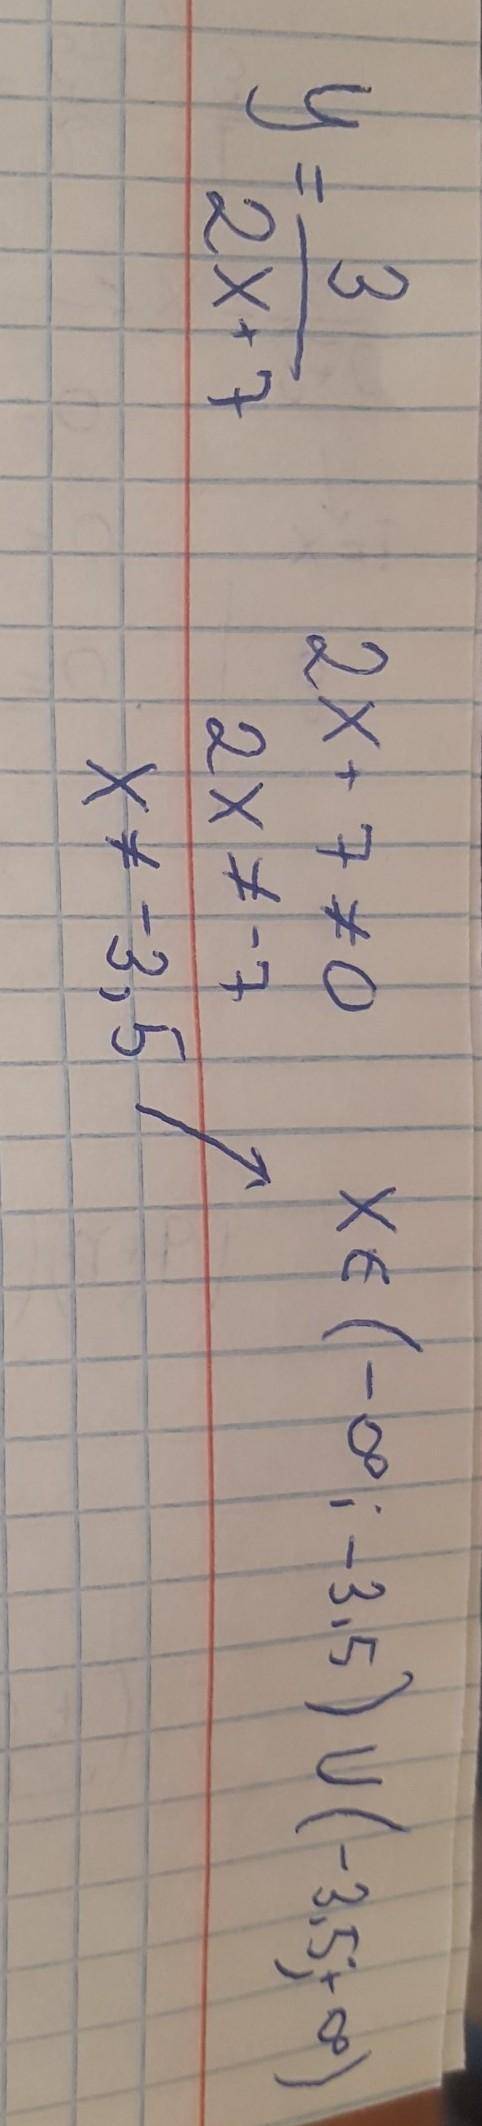 y = 3/(2x+7)
2x+7≠0
2x≠-7
x≠-3,5 ↗
x∈(-∞;-3,5)∪(-3,5;+∞)